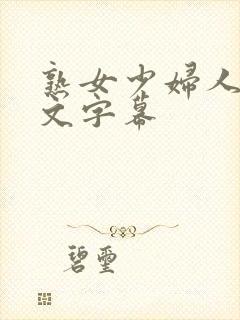 熟女少妇人
文字幕
碧玺